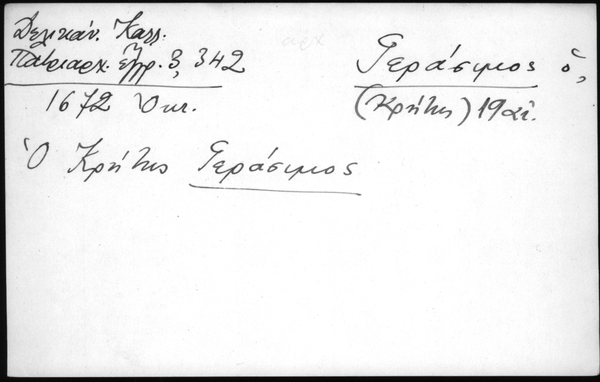 Δελικάν. Καλλ.
Πατριαρχ. ἔγγρ. 3, 342
1672 Ὀκτ.
Γεράσιμος ὁ,
(Κρήτης) 17 αἰ.
Ὁ Κρήτης Γεράσιμος